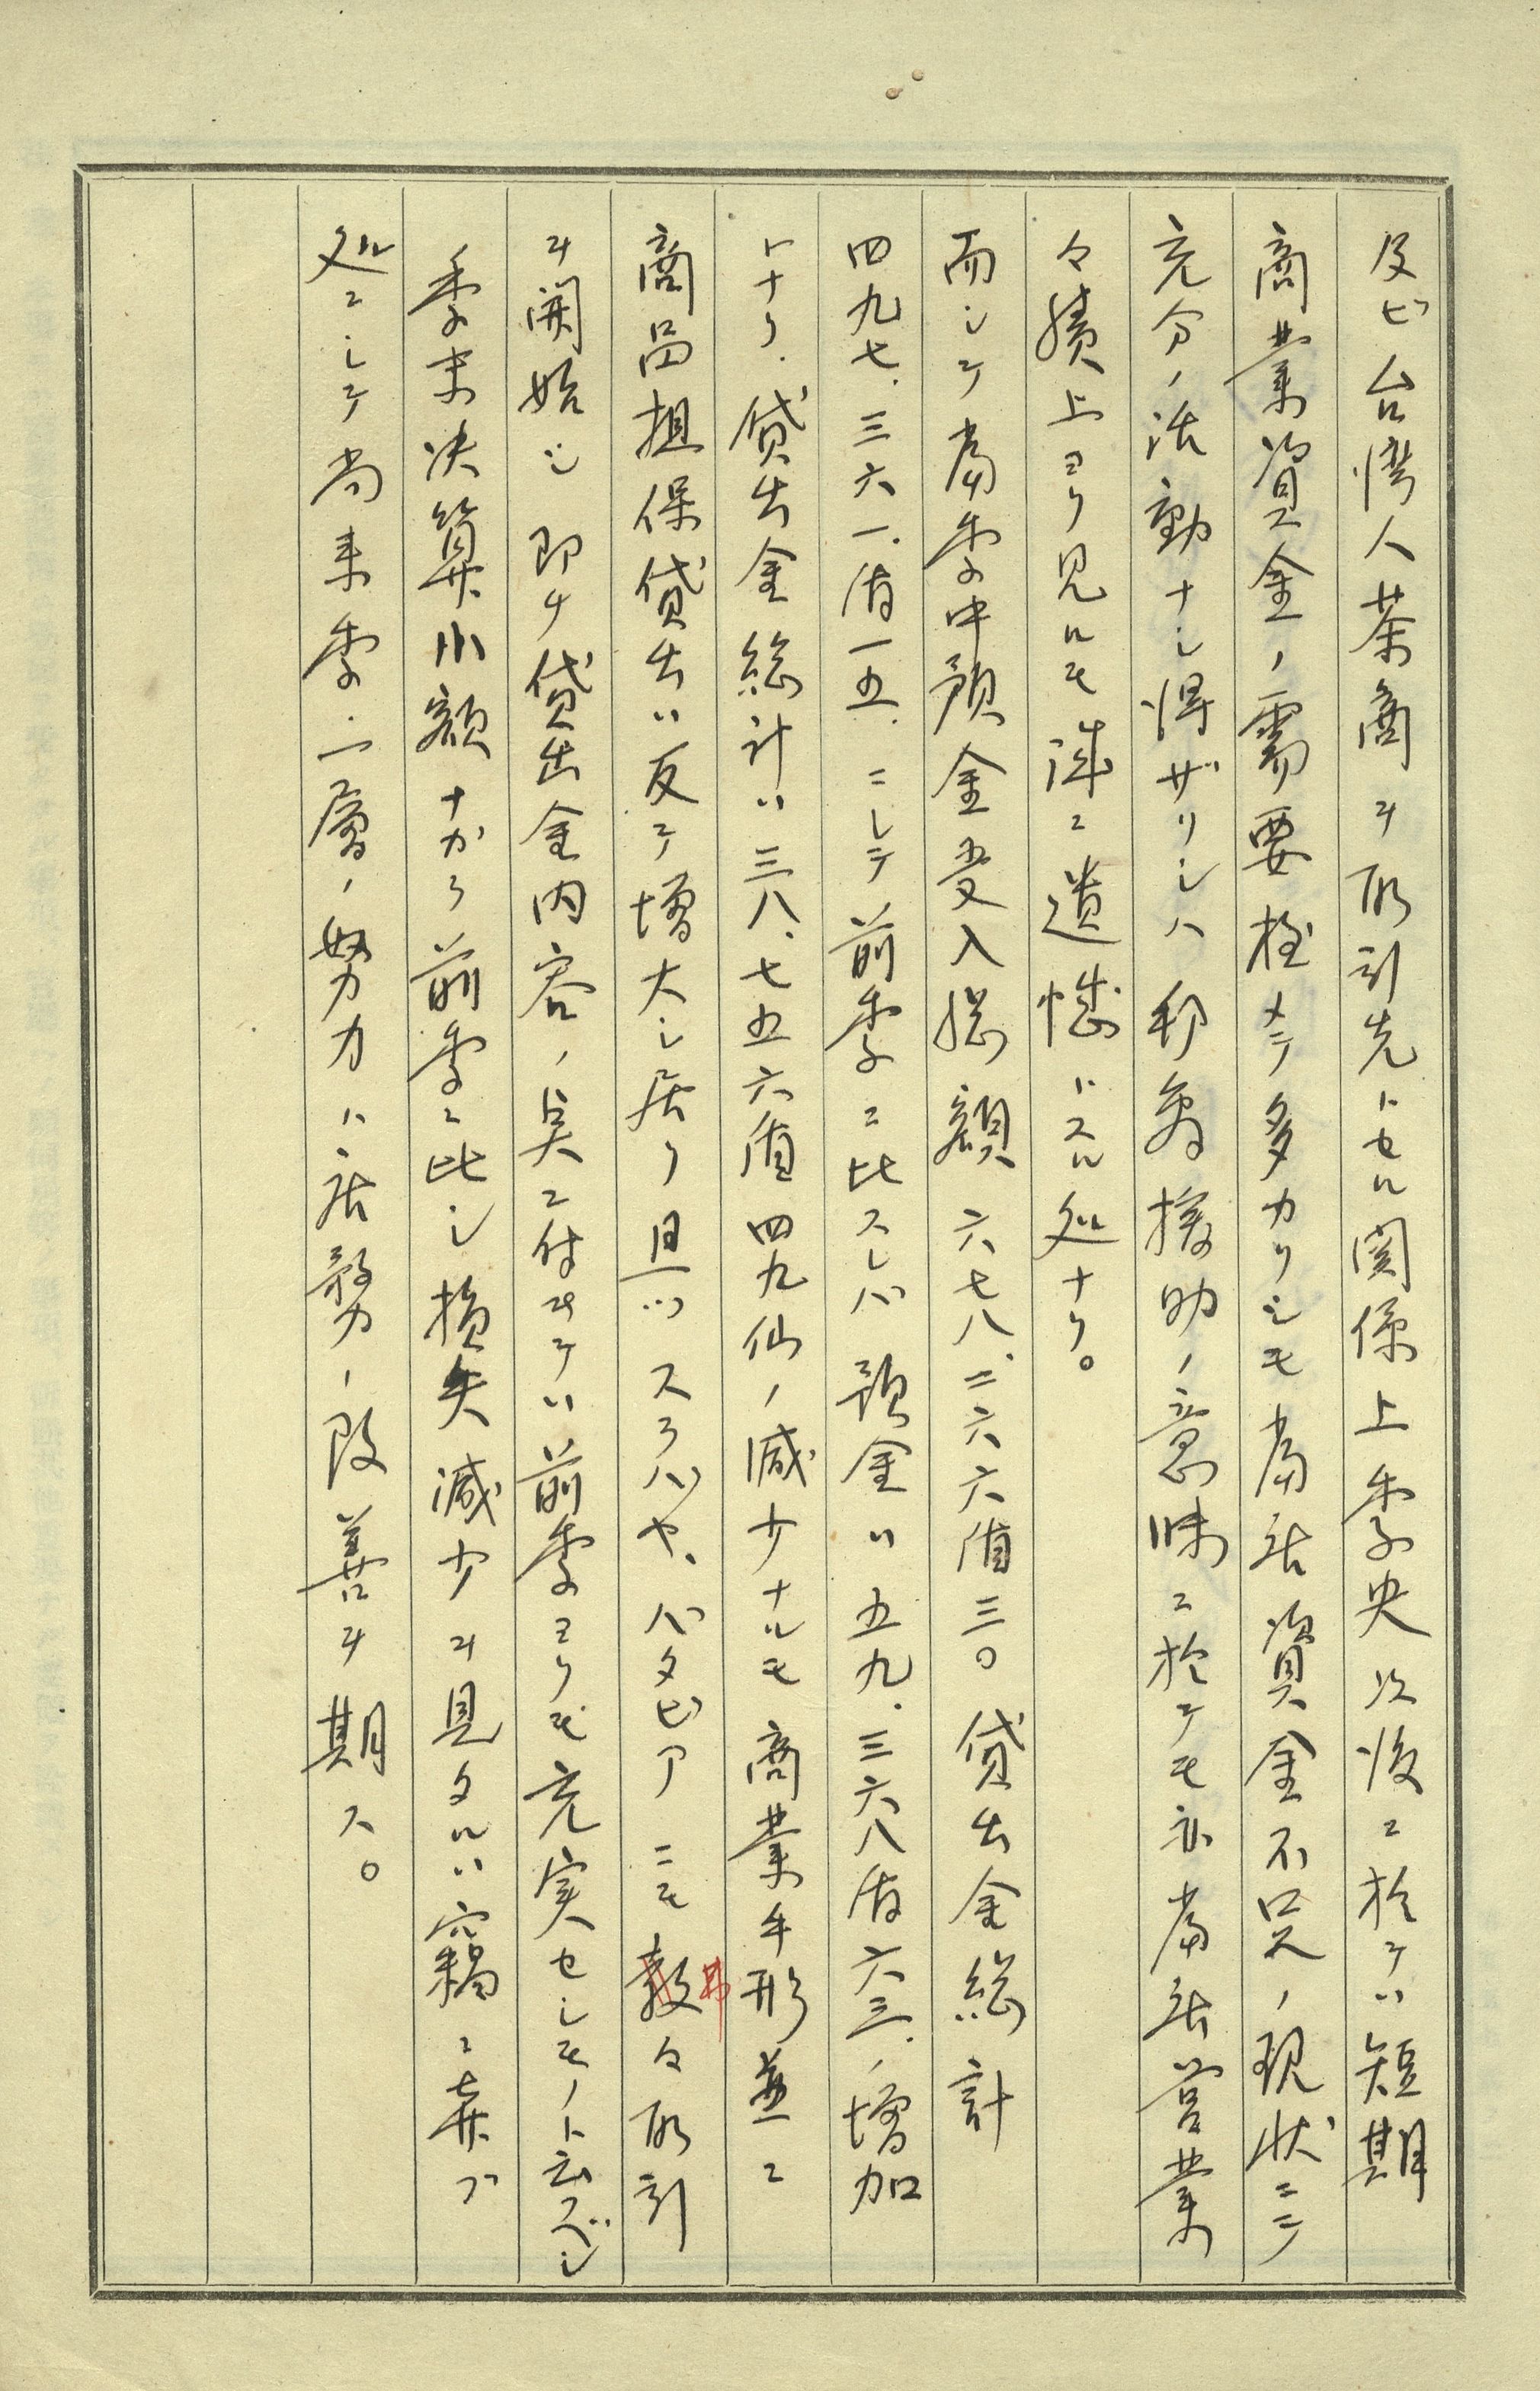 及ビ台湾人茶商ヲ取引先トセル関係上季央以後ニ於テハ短期
商業資金ノ需要極メテ多カリシモ当店資金不足ノ現状ニテ
充分ノ活動ナシ得ザリシハ邦商援助ノ意味ニ於テモ亦当店営業
々績上ヨリ見ルモ誠ニ遺憾トスル処ナリ。
而シテ当季中預金受入総額六七八、二六六盾三〇貸出金総計
四九七、三六一、盾一五、ニシテ前季ニ比スレバ預金ハ五九、三六八盾六三、ノ増加
トナリ、貸出金総計ハ三八、七五六盾四九仙ノ減少ナルモ商業手形並ニ
商品担保貸出ハ反テ増大シ居リ且ツスラバヤ、バタビアニモ数々取引
ヲ開始シ即チ貸出金内容ノ点ニ付キテハ前季ヨリモ充実セシモノト云フベシ
季末決算小額ナガラ前季ニ比シ損失減少ヲ見タルハ窃ニ喜ブ
処ニシテ尚来季一層ノ努力ト店務ノ改善ヲ期ス。